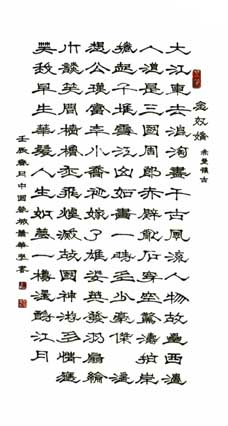 念奴嬌 赤壁懷古
大江東去浪淘盡千古風流人物故壘西邊
人道是三國周郎赤壁亂石穿空驚濤拍岸
捲起千堆雪江山如畫一時多少豪傑遙
想公瑾當年小喬初嫁了雄姿英發羽扇綸
巾談笑間檣櫓灰飛煙滅故國神遊多情應
笑我早生華髮人生如夢一樽還酹江月
壬辰春月中國藝城蕭華書